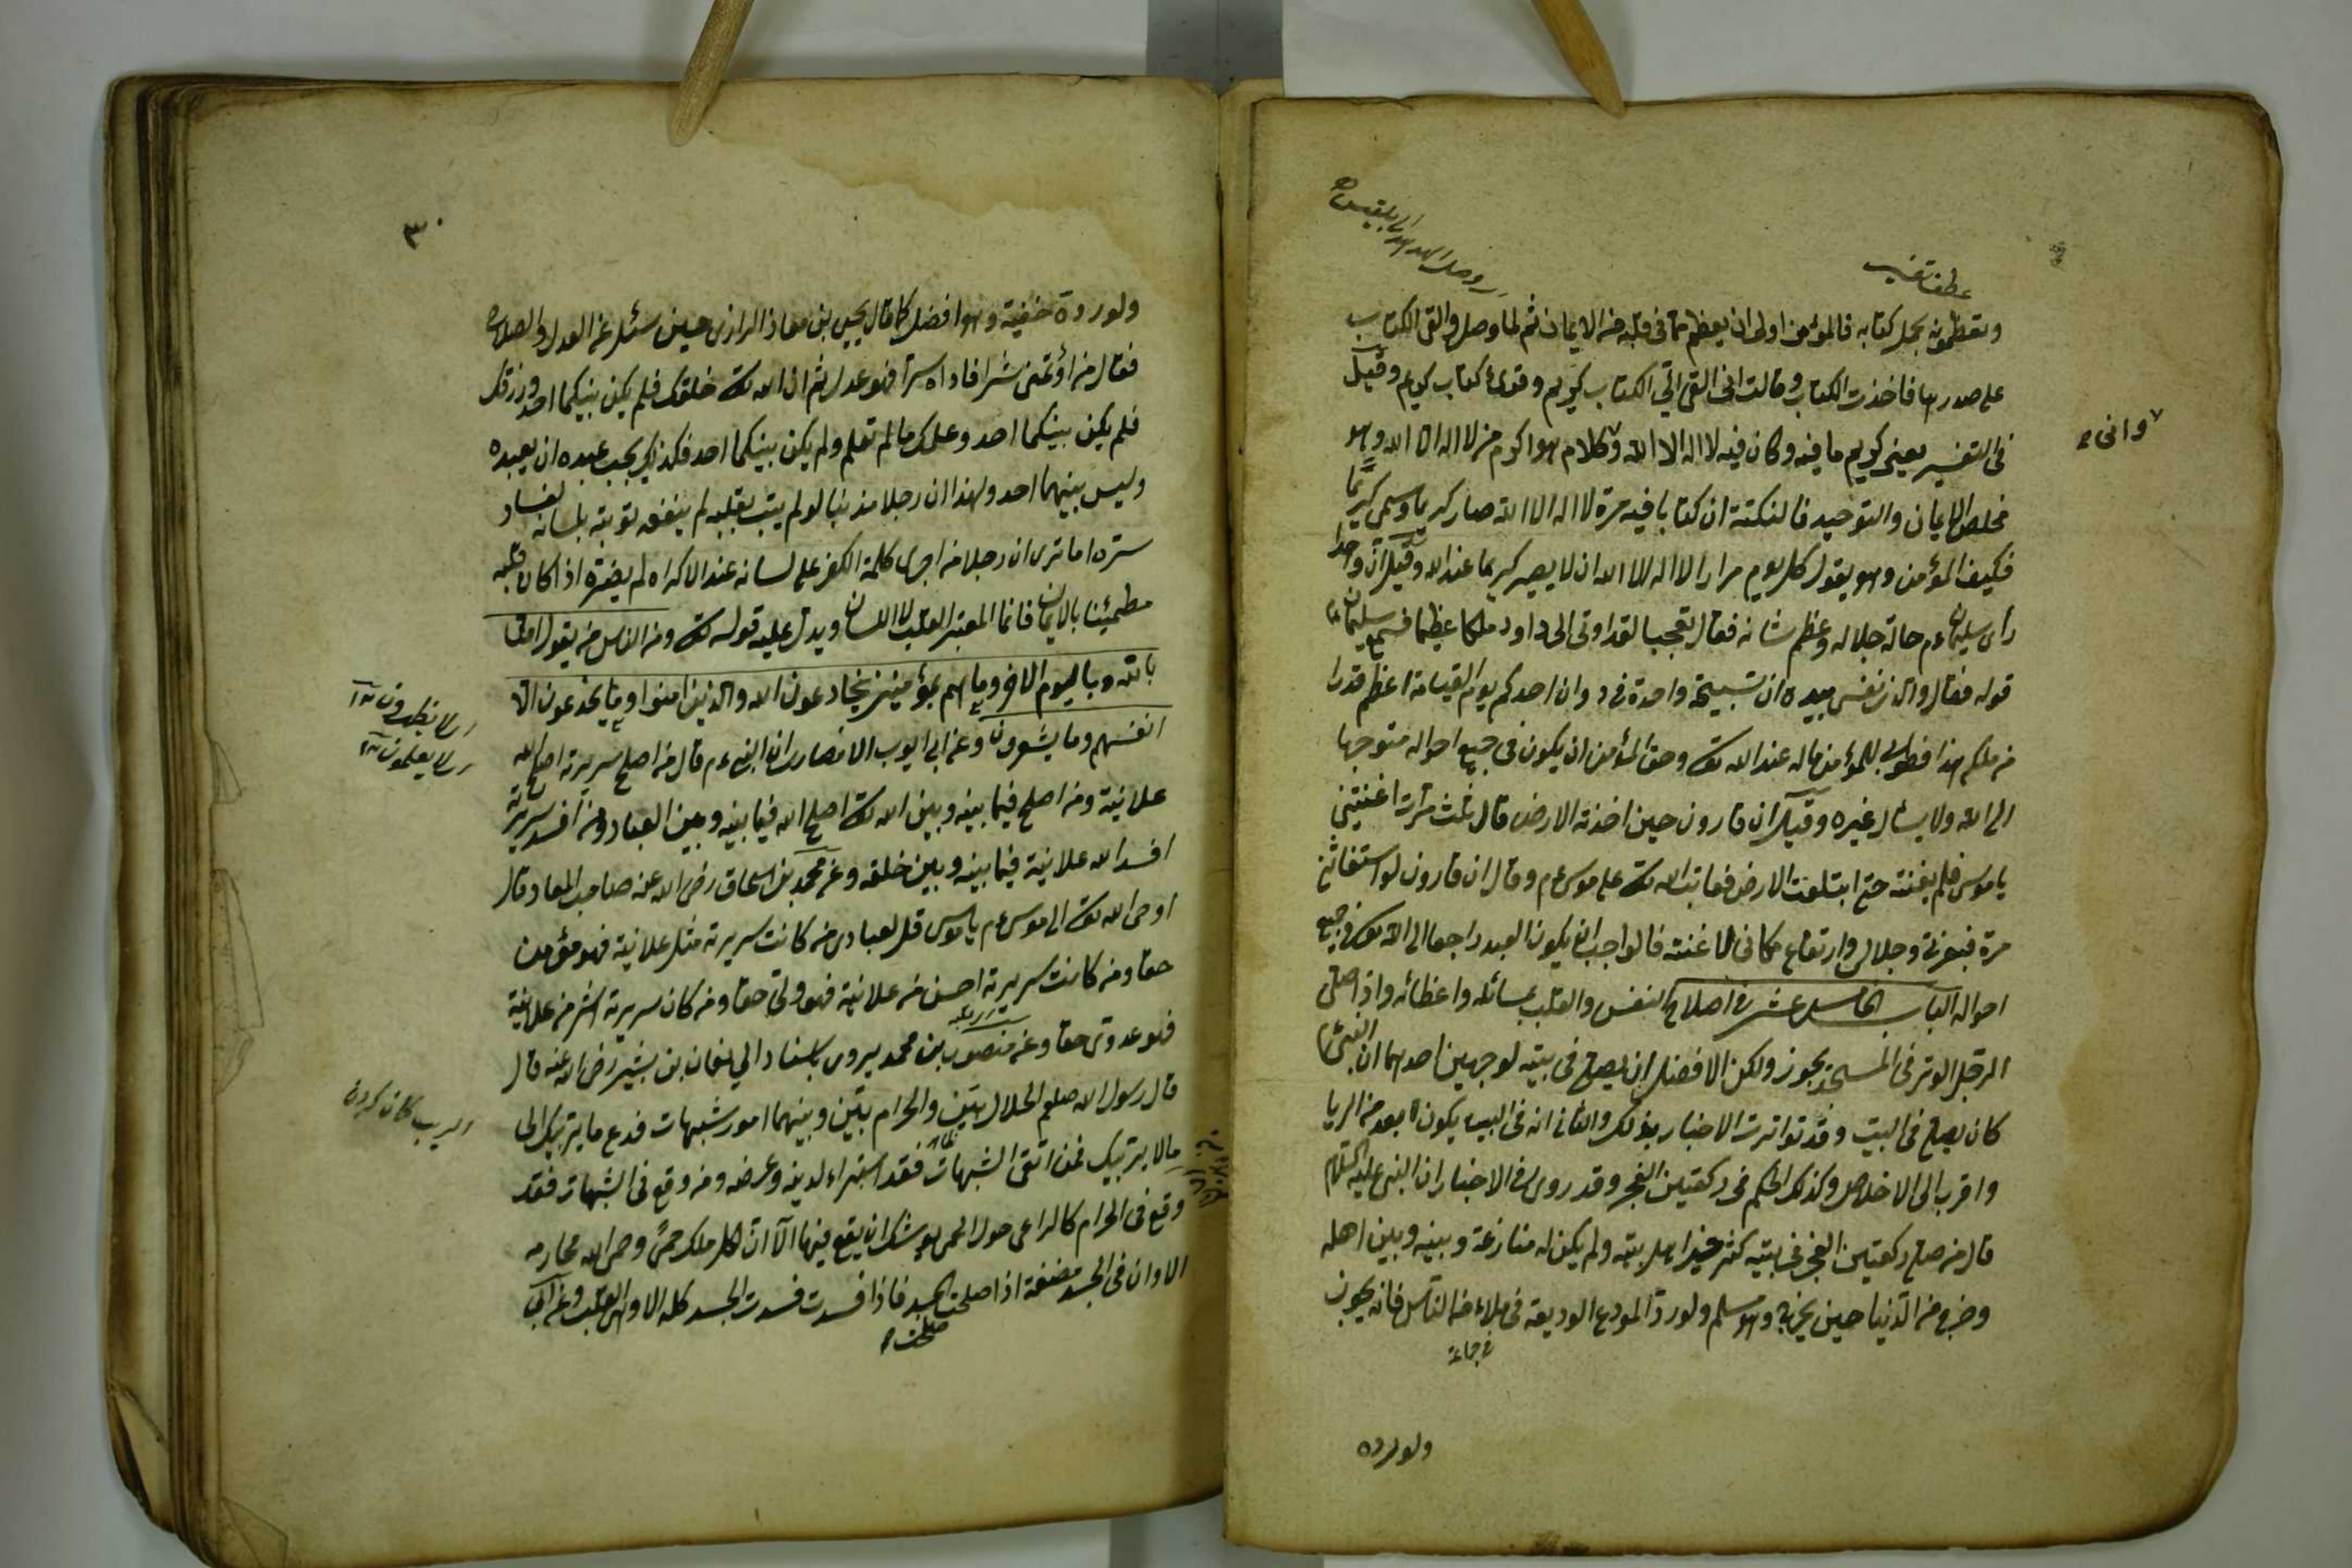 عطف تفسير
وصل الهدهد الى بلقيس
وتعظمونه بحمل كتابه فالمؤمن اولى ان يعظم مما في قلبه من الايمان ثم لما وصل والقى الكتاب
على صدرها فاخذت الكتاب وقالت انى القى الي الكتاب كريم وقوله كتاب كريم وقيل
في التفسير يعني كريم ما فيه وكان فيه لا اله الا الله وكلام هو اكرم من لا اله الا الله وهو
وانى
مخلص الايمان والتوحيد فالنكتة ان كتابا فيه مرة لا اله الا الله صار كريما وسمى كريما
فكيف المؤمن وهو يقول كل يوم مرارا لا اله الا الله ان لا يصير كريما عند الله وقيل ان واحدا
رأى سليمان ءم حالة جلاله وعظم شانه فقال تعجبا لقد اوتى الى داود ملكا عظيما فسمع سليمان ءم
قوله فقال والذى نفسي بيده ان تسبيحة واحدة في ديوان احدكم يوم القيامة اعظم قدرا
من ملكم هذا فطوبى للمؤمن ماله عند الله تعالى وحق المؤمن ان يكون في جميع احواله متوجها
الى الله ولا يسئل غيره وقيل ان قارون حين اخذته الارض قال ثلث مرات اغثنى
يا موسى فلم يغثه حتى ابتلعته الارض فعاتب الله تعالى على موسى ءم وقال ان قارون لو استغاثنى
مرة فبعزتى وجلالى وارتفاع مكانى لاغثته فالواجب ان يكون العبد راجعا الى الله تعالى في جميع
احواله الباب الخامس عشر في اصلاح النفس والقلب بمسائله واعظائه واذا صلى
الرجل الوتر في المسجد يجوز ولكن الافضل ان يصلى في بيته لوجهين احدهما ان النبى ءم
كان يصلى في البيت وقد تواترت الاخبار بذلك والثانى انه في البيت يكون ابعد من الريا
واقرب الى الاخلاص وكذلك الحكم في ركعتين الفجر وقد روى في الاخبار ان النبى عليه السلام
قال من صلى ركعتين الفجر في بيته كثر خير اهل بيته ولم يكن له منازعة وبينه وبين اهله
وخرج من الدنيا حين يخرج وهو مسلم ولو رد المودع الوديعة في ملاء من الناس فانه يجوز
في جماعة
ولو رده
٣٠
ولو رده خفية وهو افضل كما قال يحيى بن معاذ الرازى حين سئل عن العدل والصلاح
فقال من اؤتمن شرا فاداه سرا فهو عدل ثم ان الله تعالى خلقك فلم يكن بينكما احد ورزقك
فلم يكن بينكما احد وعلمك ما لم تعلم ولم يكن بينكما احد فكذلك يجب عبده ان يعبده
وليس بينهما احد ولهذا ان رجلا مذنبا لو لم يتب بقلبه لم ينفعه توبته بلسانه لفساد
سره اما ترى ان رجلا من اجرى كلمة الكفر على لسانه عند الاكراه لم يضره اذا كان قلبه
مطمئنا بالايمان فانما المعتبر القلب لا اللسان ويدل عليه قوله تعالى ومن الناس من يقول امنا
بالله وباليوم الاخر وما هم بمؤمنين يخادعون الله والذين امنوا وما يخدعون الا
اى لا ينظرون
انفسهم وما يشعرون وعن ابى ايوب الانصارى ان النبى ءم قال من اصلح سريرته اصلح الله
اى لا يعلمون
علانية ومن اصلح فيما بينه وبين الله تعالى اصلح الله فيما بينه وبين العباد ومن افسد سريرته
افسد الله علانية فيما بينه وبين خلقه وعن محمد بن اسحاق رضى الله عنه صاحب المعاد قال
اوحى الله تعالى الى موسى ءم يا موسى قل لعبادى من كانت سريرته مثل علانية فهو مؤمن
حقا ومن كانت سريرته احسن من علانية فهو ولى حقا ومن كان سريرته اشر من علانية
فهو عدوى حقا وعن منصور بن محمد يروى باسناد الى نعمان بن بشير رضى الله عنه قال
قال رسول الله صلعم الحلال بين والحرام بين وبينهما امور شبهات فدع ما يريبك الى
الريب كمان كردن
ما لا يريبك فمن اتقى الشبهات فقد استبراء لدينه وعرضه ومن وقع في الشبهات فقد
وقع في الحرام كالراعى حول الحمى يوشك ان يقع فيها الا ان لكل ملك حمى وحمى الله محارمه
الا وان في الجسد مضغة اذا صلحت الجسد فاذا فسدت فسدت الجسد كله الا وهى القلب وعن ابى
صلحت